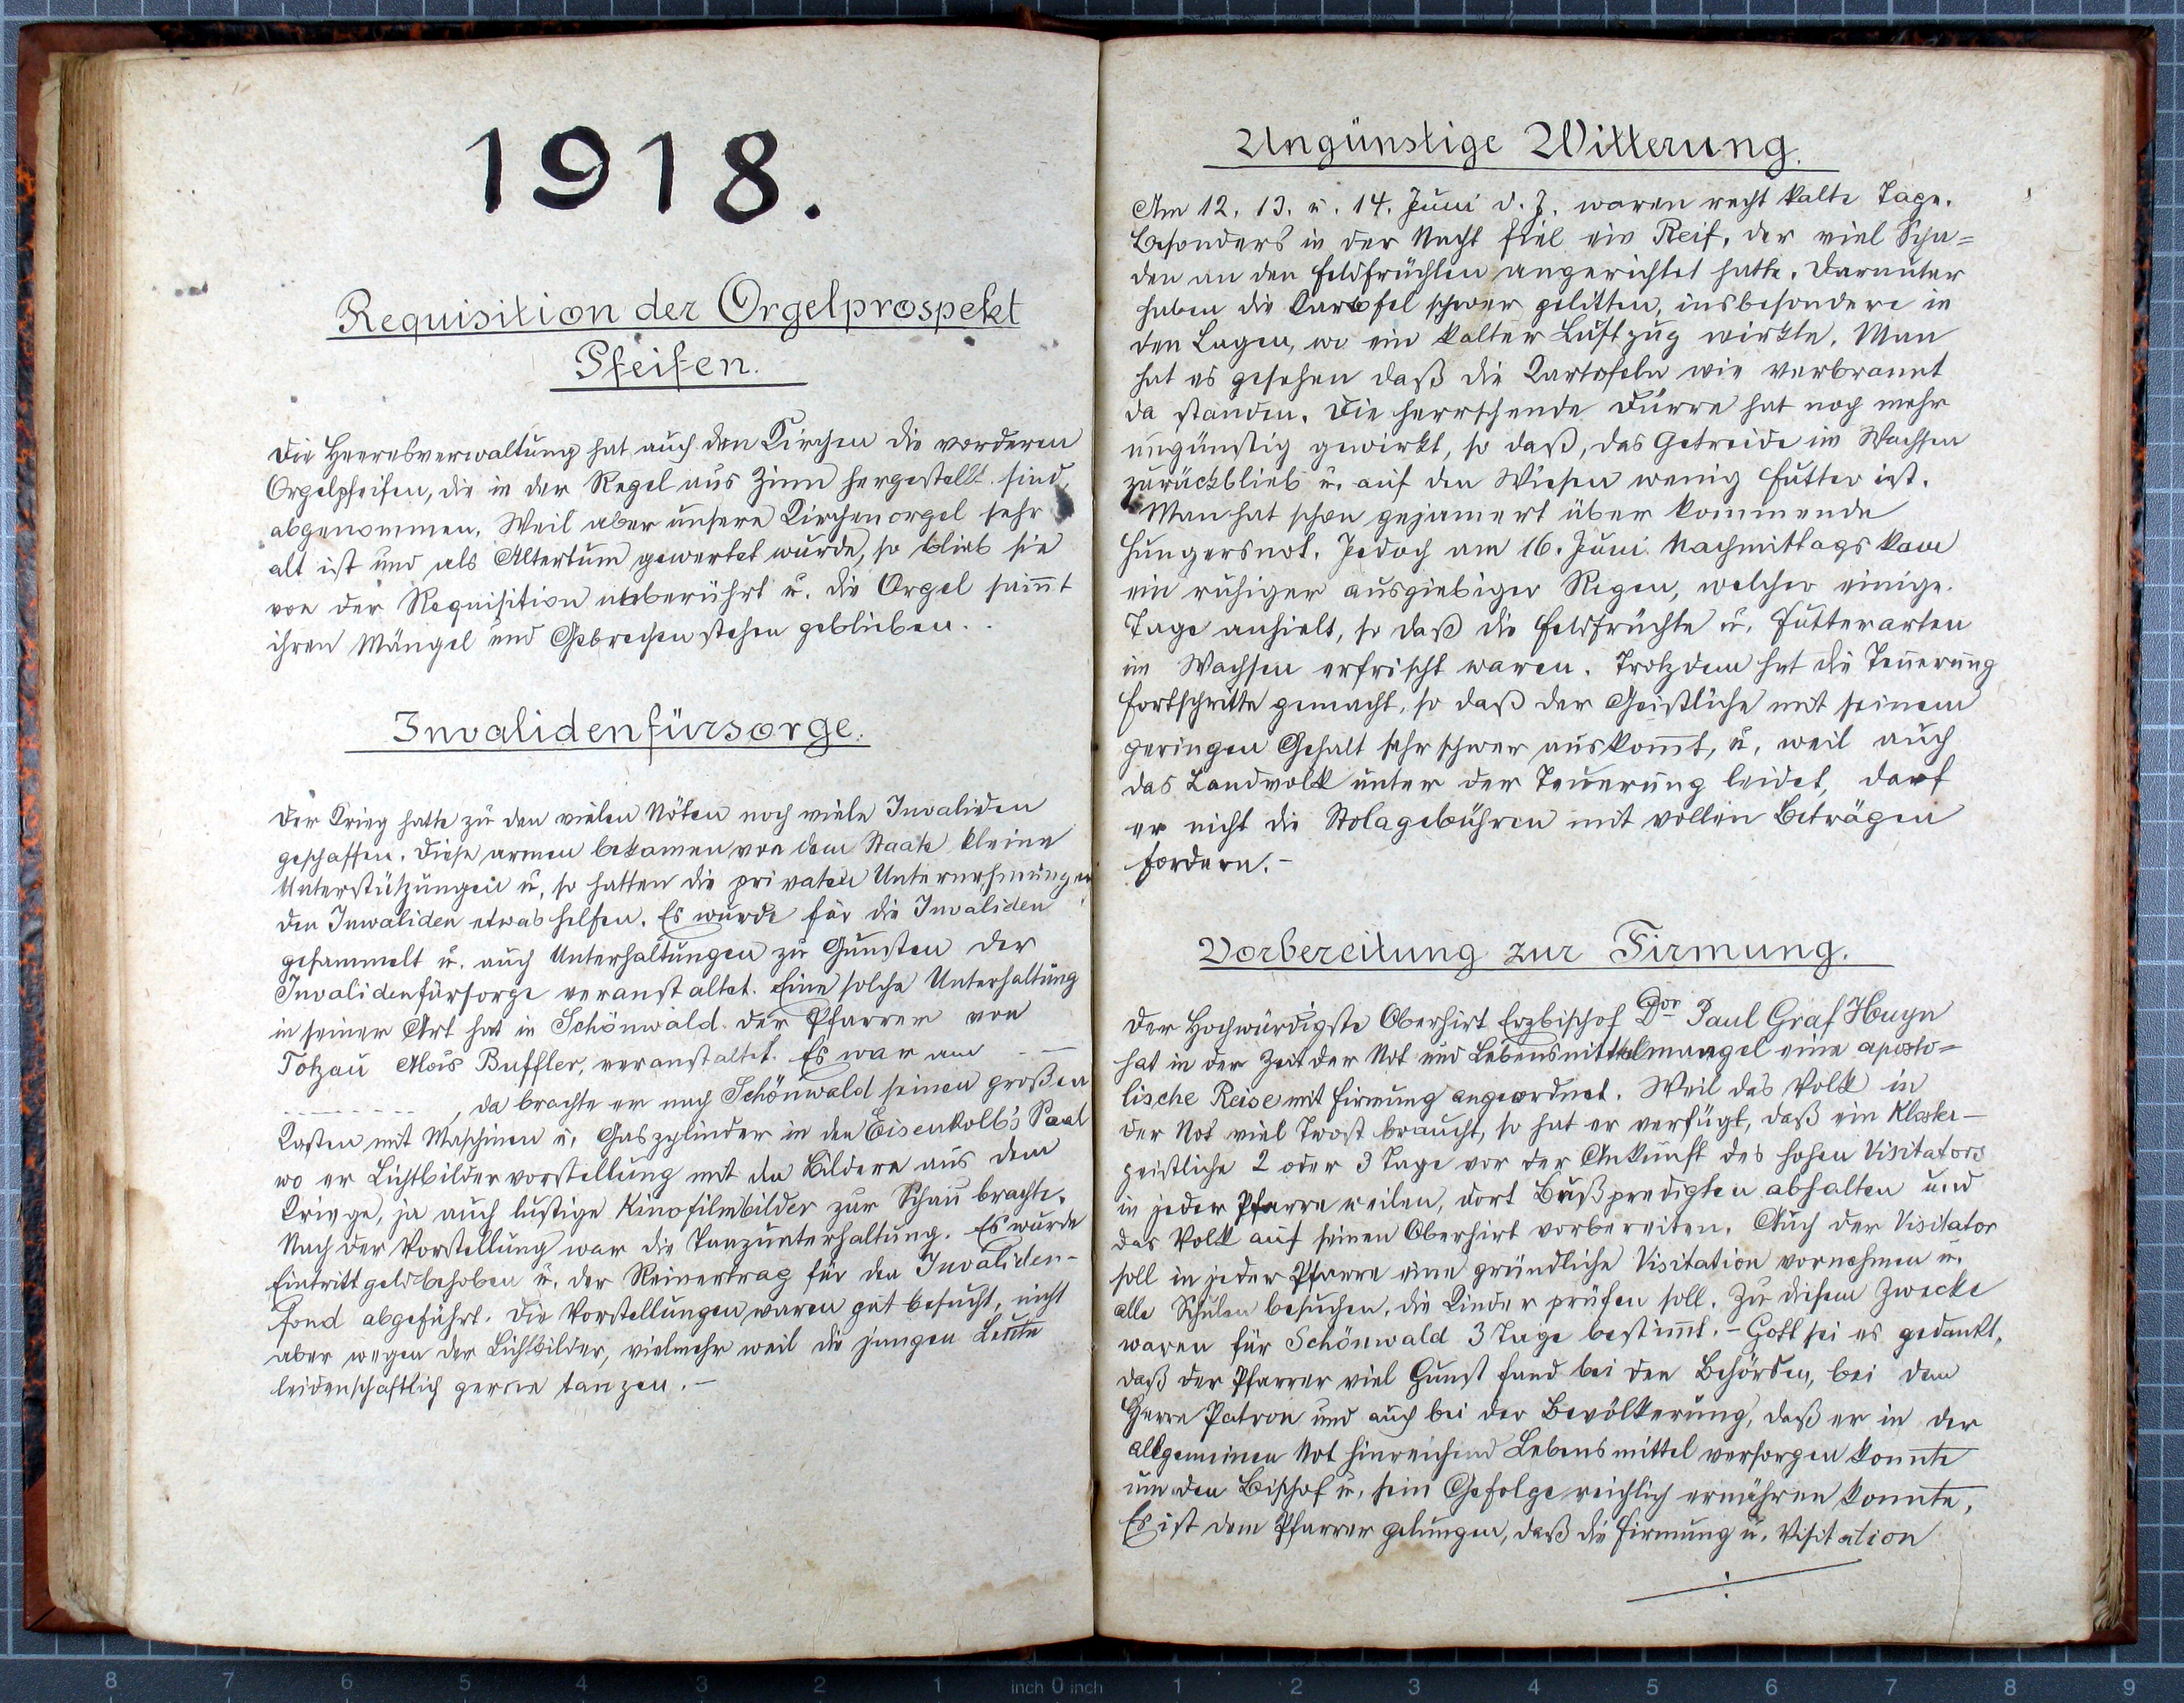 1918.
Requisition der Orgelprospekt
Pfeifen.
Die Heeresverwaltung hat auch den Kirchen die vorderen
Orgelpfeifen, die in der Regel aus Zinn hergestellt sind,
abgenommen. Weil aber unsere Kirchenorgel sehr
alt ist und als Altertum gewertet wurde, so blieb sie
von der Requisition unberührt u. die Orgel saint
ihren Mängel und Gebrechen stehen geblieben.
Invalidenfürsorge.
Der Krieg hatte zu den vielen Nöten noch viele Invaliden
geschaffen. Diese armen bekamen von dem Staate kleine
Unterstützungen u. so hatten die privaten Unternehmungen
den Invaliden etwas helfen. Es wurde für die Invaliden
gesammelt u. auch Unterhaltungen zu Gunsten der
Invalidenfürsorge veranstaltet. Eine solche Unterhaltung
in seiner Art hat in Schönwald der Pfarrer von
Totzau Alois Buffler, veranstaltet. Es war am - —
- - - - - - - - , da brachte er nach Schönwald seinen großen
Kasten mit Maschinen u. Gaszylinder in den Eisenkolb's Saal
wo er Lichtbildervorstellung mit den Bildern aus dem
Kriege, ja auch lustige Kinofilmbilder zur Schau brachte.
Nach der Vorstellung war die Tanzunterhaltung. Es wurde
Eintrittgeld behoben u. der Reinertrag für den Invaliden-
fond abgeführt. Die Vorstellungen waren gut besucht, nicht
aber wegen der Lichtbilder, vielmehr weil die jungen Leute
leidenschaftlich gerne tanzen. -
Ungünstige Witterung.
Am 12. 13. u. 14. Juni d. J. waren recht kalte Tage.
Besonders in der Nacht fiel ein Reif, der viel Scha=
den an den Feldfrüchten angerichtet hatte. Darunter
haben die Kartofel schwer gelitten, insbesondere in
den Lagen, wo ein kalter Luftzug wirkte. Man
hat es gesehen daß die Kartofeln wie verbrannt
da standen. Die herrschende Dürre hat noch mehr
ungünstig gewirkt, so daß, das Getreide im Wachsen
zurückblieb u. auf den Wiesen wenig Futter ist.
Man hat schon gejamert über kommende
Hungersnot. Jedoch am 16. Juni Nachmittags kam
ein ruhiger ausgiebiger Regen, welcher einige
Tage anhielt, so daß die Feldfrüchte u. Futterarten
im Wachsen erfrischt waren. Trotzdem hat die Teuerung
Fortschritte gemacht, so daß der Geistliche mit seinem
geringen Gehalt sehr schwer auskom̅t, u. weil auch
das Landvolk unter der Teuerung leidet, darf
er nicht die Stolagebühren mit vollen Beträgen
fordern. -
Vorbereitung zur Firmung.
Der Hochwürdigste Oberhirt Erzbischof Dor Paul Graf Huyn
hat in der Zeit der Not und Lebensmittelmangel eine aposto=
lische Reise mit Firmung angeordnet. Weil das Volk in
der Not viel Trost braucht, so hat er verfügt, daß ein Kloster-
geistliche 2 oder 3 Tage vor der Ankunft des hohen Visitators
in jeder Pfarre weilen, dort Bußpredigten abhalten und
das Volk auf seinen Oberhirt vorbereiten. Auch der Visitator
soll in jeder Pfarre eine gründliche Visitation vornehmen u.
alle Schulen besuchen, die Kinder prüfen soll. Zu diesem Zwecke
waren für Schönwald 3 Tage bestim̅t. - Gott sei es gedankt,
daß der Pfarrer viel Gunst fand bei den Behörden, bei dem
Herrn Patron und auch bei der Bevölkerung, daß er in der
allgemeinen Not hinreichend Lebensmittel versorgen konnte
um den Bischof u. sein Gefolge reichlich ernähren konnte.
Es ist dem Pfarrer gelungen, daß die Firmung u. Visitation